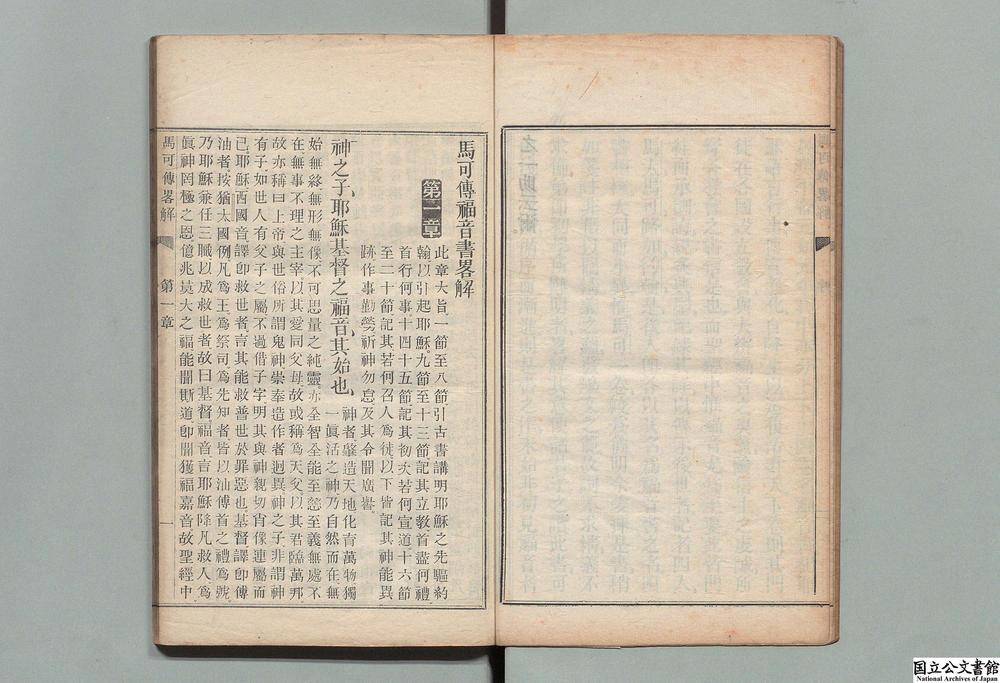 馬可傳福音書畧解
第一章
此章大旨一節至八節引古書講明耶穌之先驅約
翰以引起耶穌九節至十三節記其立教首盡何禮
首行何事十四十五節記其初次若何宣道十六節
至二十節記其若何召人爲徒以下皆記其神能異
跡作事勤勞祈神勿怠及其令聞廣譽
神之子耶穌基督之福音其始也
神者肇造天地化育萬物獨
一眞活之神乃自然而在無
始無終無形無像不可思量之純靈亦全智全能至慈至義無處不
在無事不理之主宰以其愛同父母故或稱爲天父以其君臨萬邦
故亦稱曰上帝與世俗所謂鬼神崇奉造作者迥異神之子非謂神
有子如世人有父子之屬不過借子字明其與神親切肖像連屬而
已耶穌西國音譯卽救世者言其能救普世於罪惡也基督譯卽傅
油者按猶太國例凡爲王爲祭司爲先知者皆以油傅首之禮爲號
乃耶穌兼任三職以成救世者故曰基督福音言耶穌降凡救人爲
眞神罔極之恩億兆莫大之福能聞斯道卽聞獲福嘉音故聖經中
馬可傳畧解
第一章
一
国立公文書館
National Archives of Japan